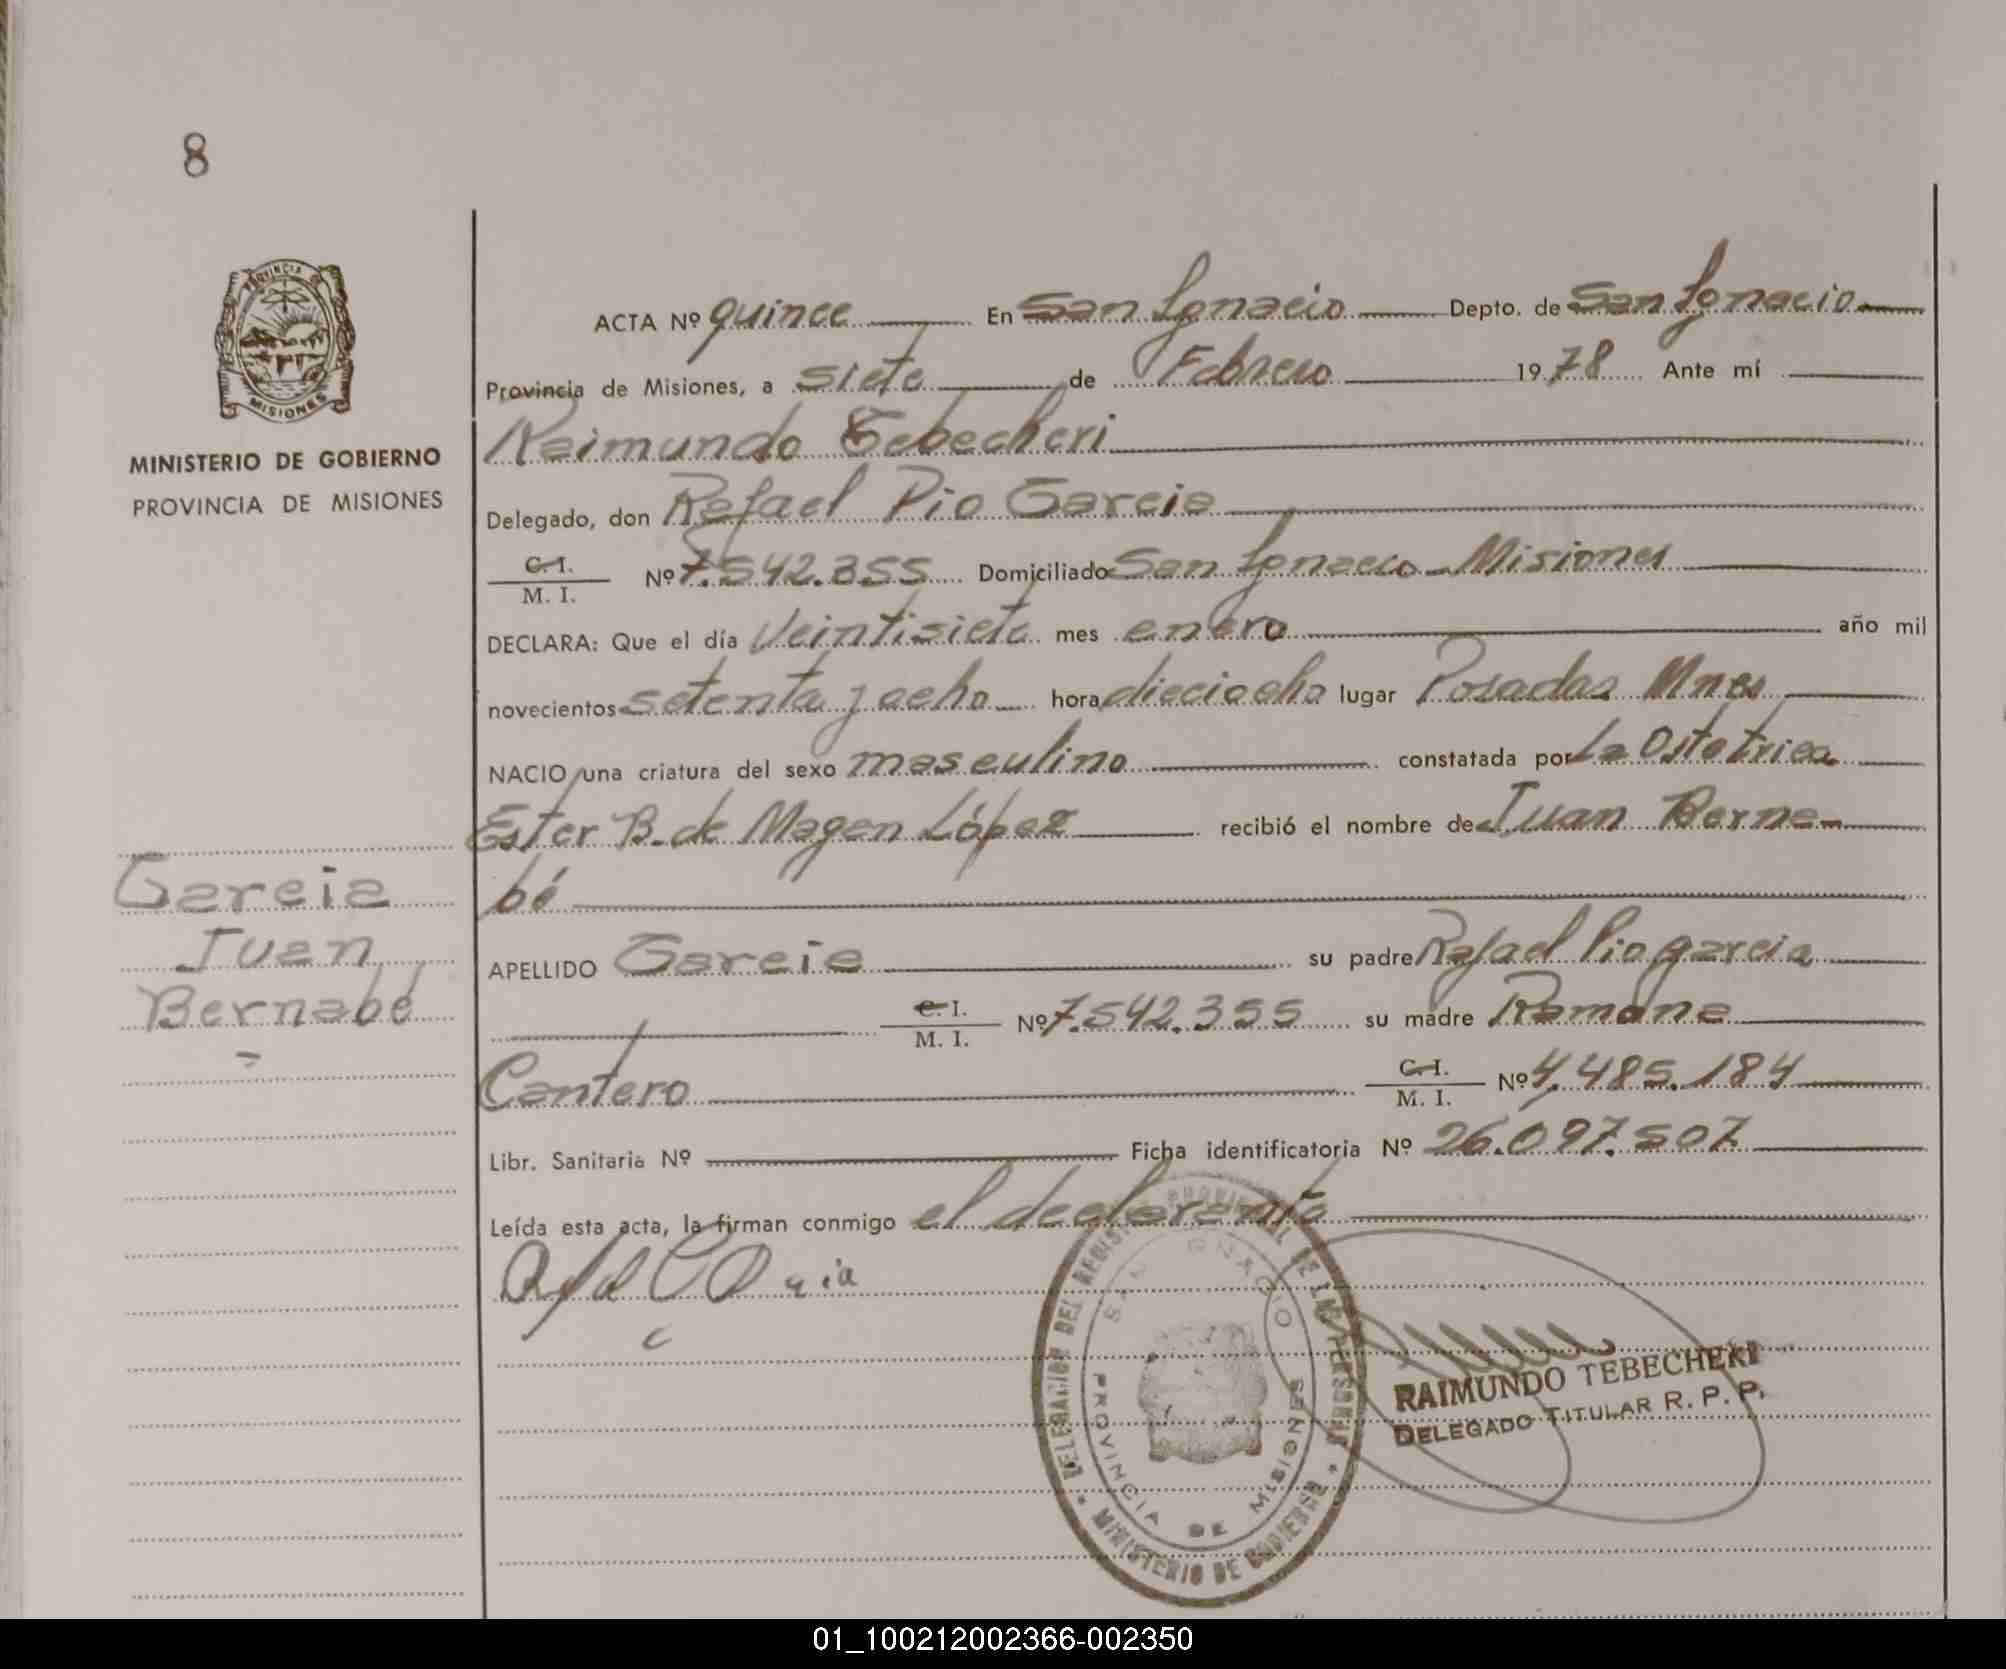 8
PROVINCIA DE
MISIONES
MINISTERIO DE GOBIERNO
PROVINCIA DE MISIONES
ACTA Nº quince En San Ignacio Depto. de San Ignacio
Provincia de Misiones, a siete de Febrero 19 78 Ante mí
Raimundo Tebecheri
Delegado, don Rafael Pio Garcia
C. I. / M. I. Nº 7.542.355 Domiciliado San Ignacio - Misiones
DECLARA: Que el día Veintisiete mes enero año mil
novecientos setenta y ocho hora dieciocho lugar Posadas Mnes
NACIO una criatura del sexo masculino constatada por La Ostetrica
Ester B. de Magen López recibió el nombre de Juan Berna-
bé
APELLIDO Garcia su padre Rafael Pio garcia
C. I. / M. I. Nº 7.542.355 su madre Ramona
Cantero C. I. / M. I. Nº 4.485.184
Libr. Sanitaria Nº Ficha identificatoria Nº 26.097.507
Leída esta acta, la firman conmigo el declarante
Garcia
Juan
Bernabé
DELEGACION DEL REGISTRO PROVINCIAL DE LAS PERSONAS
MINISTERIO DE GOBIERNO
SAN IGNACIO
PROVINCIA DE MISIONES
RAIMUNDO TEBECHERI
DELEGADO TITULAR R. P. P.
01_100212002366-002350